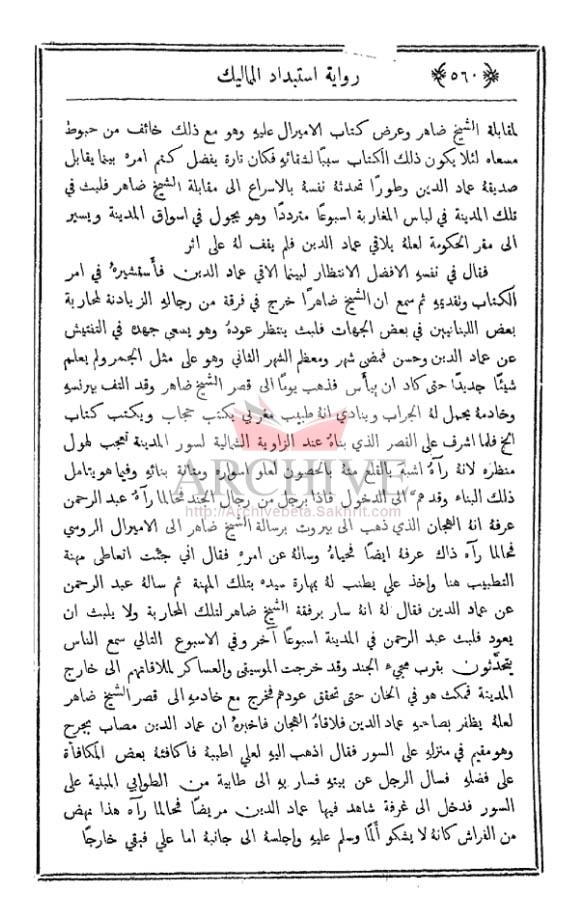 ٥٦٠
رواية استبداد المماليك
لمقابلة الشيخ ضاهر وعرض كتاب الاميرال عليهِ وهو مع ذلك خائف من حبوط
مسعاه لئلا يكون ذلك الكتاب سببًا لشقائهِ فكان تارة يفضل كتم امره بينما يقابل
صديقهُ عماد الدين وطورًا تحدثهُ نفسهُ بالاسراع الى مقابلة الشيخ ضاهر فلبث في
تلك المدينة في لباس المغاربة اسبوعًا مترددًا وهو يجول في اسواق المدينة ويسير
الى مقر الحكومة لعلهُ يلاقي عماد الدين فلم يقف لهُ على اثر
فقال في نفسهِ الافضل الانتظار لبينما الاقي عماد الدين فأستشيرهُ في امر
الكتاب وتقديمهِ ثم سمع ان الشيخ ضاهرًا خرج في فرقة من رجالهِ الزيادنة لمحاربة
بعض اللبنانيين في بعض الجهات فلبث ينتظر عودهُ وهو يسعى جهدهُ في التفتيش
عن عماد الدين وحسن فمضى شهر ومعظم الشهر الثاني وهو على مثل الجمر ولم يعلم
شيئًا جديدًا حتى كاد ان ييأس فذهب يومًا الى قصر الشيخ ضاهر وقد التف ببرنسهِ
وخادمهُ يحمل لهُ الجراب وينادي انهُ طبيب مغربي يكتب حجاب ويكتب كتاب
الخ فلما اشرف على القصر الذي بناهُ عند الزاوية الشمالية لسور المدينة تعجب لهول
منظره لانهُ رآهُ اشبه بالقلع منهُ بالحصون لعلو اسوره ومتانة بنائهِ وفيما هو يتامل
ذلك البناء وقد همَّ الى الدخول فاذا برجل من رجال الجند فحالما رآهُ عبد الرحمن
عرفهُ انهُ الهجان الذي ذهب الى بيروت برسالة الشيخ ضاهر الى الاميرال الروسي
فحالما رآه ذاك عرفهُ ايضًا فحياهُ وسالهُ عن امره فقال اني جئت اتعاطى مهنة
التطبيب هنا واخذ علي يطنب لهُ بمهارة سيده بتلك المهنة ثم سالهُ عبد الرحمن
عن عماد الدين فقال لهُ انهُ سار برفقة الشيخ ضاهر لتلك المحاربة ولا يلبث ان
يعود فلبث عبد الرحمن في المدينة اسبوعًا آخر وفي الاسبوع التالي سمع الناس
يتحدَّثون بقرب مجيء الجند وقد خرجت الموسيقى والعساكر لملاقاتهم الى خارج
المدينة فمكث هو في الخان حتى تحقق عودهم فخرج مع خادمهِ الى قصر الشيخ ضاهر
لعلهُ يظفر بصاحبهِ عماد الدين فلاقاهُ الهجان فاخبرهُ ان عماد الدين مصاب بجرح
وهو مقيم في منزلهِ على السور فقال اذهب اليهِ لعلي اطببهُ فأكافئهُ بعض المكافأة
على فضلهِ فسال الرجل عن بيتهِ فسار بهِ الى طابية من الطوابي المبنية على
السور فدخل الى غرفة شاهد فيها عماد الدين مريضًا فحالما رآه هذا نهض
من الفراش كانهُ لا يشكو ألمًا وسلم عليهِ واجلسهُ الى جانبهِ اما علي فبقي خارجًا
ARCHIVE
http://Archivebeta.Sakhrit.com